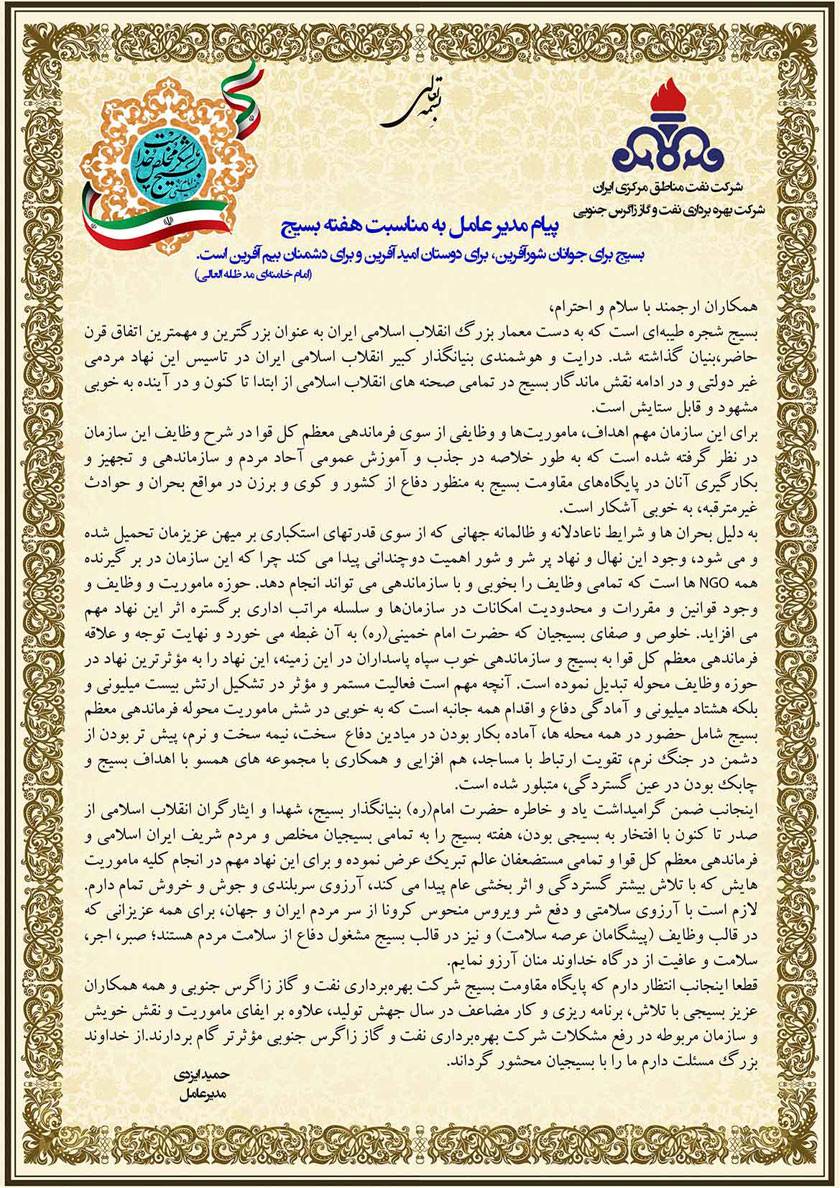 بسمه تعالی
شرکت نفت مناطق مرکزی ایران
شرکت بهره برداری نفت و گاز زاگرس جنوبی
بسیج لشکر مخلص خداست
امام خمینی
پیام مدیرعامل به مناسبت هفته بسیج
بسیج برای جوانان شورآفرین، برای دوستان امیدآفرین و برای دشمنان بیم آفرین است.
(امام خامنه‌ای مد ظله العالی)
همکاران ارجمند با سلام و احترام،
بسیج شجره طیبه‌ای است که به دست معمار بزرگ انقلاب اسلامی ایران به عنوان بزرگترین و مهمترین اتفاق قرن
حاضر،بنیان گذاشته شد. درایت و هوشمندی بنیانگذار کبیر انقلاب اسلامی ایران در تاسیس این نهاد مردمی
غیر دولتی و در ادامه نقش ماندگار بسیج در تمامی صحنه های انقلاب اسلامی از ابتدا تا کنون و در آینده به خوبی
مشهود و قابل ستایش است.
برای این سازمان مهم اهداف، ماموریت‌ها و وظایفی از سوی فرماندهی معظم کل قوا در شرح وظایف این سازمان
در نظر گرفته شده است که به طور خلاصه در جذب و آموزش عمومی آحاد مردم و سازماندهی و تجهیز و
بکارگیری آنان در پایگاه‌های مقاومت بسیج به منظور دفاع از کشور و کوی و برزن در مواقع بحران و حوادث
غیرمترقبه، به خوبی آشکار است.
به دلیل بحران ها و شرایط ناعادلانه و ظالمانه جهانی که از سوی قدرتهای استکباری بر میهن عزیزمان تحمیل شده
و می شود، وجود این نهال و نهاد پر شر و شور اهمیت دوچندانی پیدا می کند چرا که این سازمان در بر گیرنده
همه NGO ها است که تمامی وظایف را بخوبی و با سازماندهی می تواند انجام دهد. حوزه ماموریت و وظایف و
وجود قوانین و مقررات و محدودیت امکانات در سازمان‌ها و سلسله مراتب اداری برگستره اثر این نهاد مهم
می افزاید. خلوص و صفای بسیجیان که حضرت امام خمینی(ره) به آن غبطه می خورد و نهایت توجه و علاقه
فرماندهی معظم کل قوا به بسیج و سازماندهی خوب سپاه پاسداران در این زمینه، این نهاد را به مؤثرترین نهاد در
حوزه وظایف محوله تبدیل نموده است. آنچه مهم است فعالیت مستمر و مؤثر در تشکیل ارتش بیست میلیونی و
بلکه هشتاد میلیونی و آمادگی دفاع و اقدام همه جانبه است که به خوبی در شش ماموریت محوله فرماندهی معظم
بسیج شامل حضور در همه محله ها، آماده بکار بودن در میادین دفاع سخت، نیمه سخت و نرم، پیش تر بودن از
دشمن در جنگ نرم، تقویت ارتباط با مساجد، هم افزایی و همکاری با مجموعه های همسو با اهداف بسیج و
چابک بودن در عین گستردگی، متبلور شده است.
اینجانب ضمن گرامیداشت یاد و خاطره حضرت امام(ره) بنیانگذار بسیج، شهدا و ایثارگران انقلاب اسلامی از
صدر تا کنون با افتخار به بسیجی بودن، هفته بسیج را به تمامی بسیجیان مخلص و مردم شریف ایران اسلامی و
فرماندهی معظم کل قوا و تمامی مستضعفان عالم تبریک عرض نموده و برای این نهاد مهم در انجام کلیه ماموریت
هایش که با تلاش بیشتر گستردگی و اثر بخشی عام پیدا می کند، آرزوی سربلندی و جوش و خروش تمام دارم.
لازم است با آرزوی سلامتی و دفع شر ویروس منحوس کرونا از سر مردم ایران و جهان، برای همه عزیزانی که
در قالب وظایف (پیشگامان عرصه سلامت) و نیز در قالب بسیج مشغول دفاع از سلامت مردم هستند؛ صبر، اجر،
سلامت و عافیت از درگاه خداوند منان آرزو نمایم.
قطعا اینجانب انتظار دارم که پایگاه مقاومت بسیج شرکت بهره‌برداری نفت و گاز زاگرس جنوبی و همه همکاران
عزیز بسیجی با تلاش، برنامه ریزی و کار مضاعف در سال جهش تولید، علاوه بر ایفای ماموریت و نقش خویش
و سازمان مربوطه در رفع مشکلات شرکت بهره‌برداری نفت و گاز زاگرس جنوبی مؤثرتر گام بردارند.از خداوند
بزرگ مسئلت دارم ما را با بسیجیان محشور گرداند.
حمید ایزدی
مدیرعامل